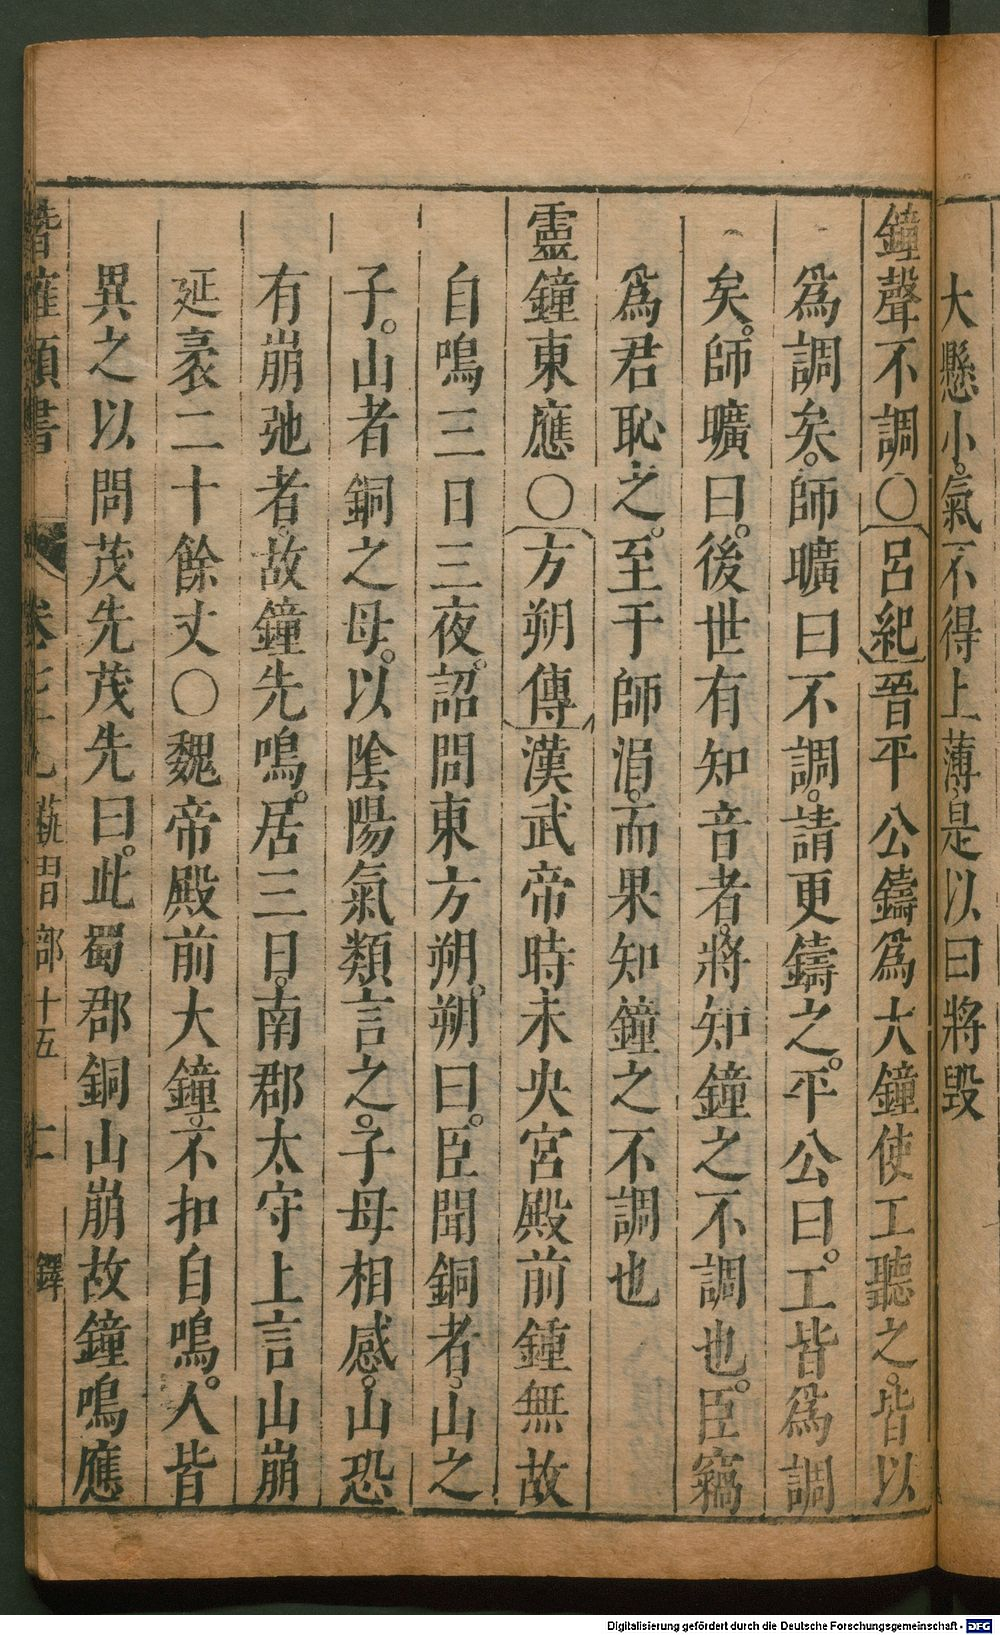 大懸小。氣不得上薄。是以曰將毀
鐘聲不調○〔呂紀〕晉平公鑄爲大鐘使工聽之。皆以
爲調矣。師曠曰不調。請更鑄之。平公曰。工皆爲調
矣。師曠曰。後世有知音者。將知鐘之不調也。臣竊
爲君恥之。至于師涓。而果知鐘之不調也
靈鐘東應○〔方朔傳〕漢武帝時未央宮殿前鍾無故
自鳴三日三夜。詔問東方朔。朔曰。臣聞銅者。山之
子。山者銅之母。以陰陽氣類言之。子母相感。山恐
有崩弛者。故鐘先鳴。居三日。南郡太守上言山崩
延袤二十餘丈○魏帝殿前大鐘。不扣自鳴。人皆
異之以問茂先茂先曰。此蜀郡銅山崩故鐘鳴應
潛確類書 卷七十九 藝習部十五 十二 鐸
Digitalisierung gefördert durch die Deutsche Forschungsgemeinschaft - DFG